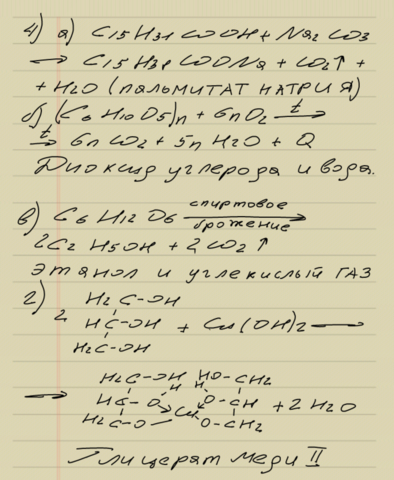 4) а) C15 H31 COOH + Na2 CO3
→ C15 H31 COONa + CO2↑ +
+ H2O (ПАЛЬМИТАТ НАТРИЯ)
б) (C6 H10 O5)n + 6nO2 t→
t→ 6n CO2 + 5n H2O + Q
Диоксид углерода и вода.
в) C6 H12 O6 спиртовое брожение→
2C2 H5OH + 2CO2↑
Этанол и углекислый ГАЗ
г) H2C-OH
2 HC-OH + Cu(OH)2 →
H2C-OH
→ H2C-OH HO-CH2
H H
HC-O O-CH + 2H2O
Cu
H2C-O O-CH2
Глицерат меди II